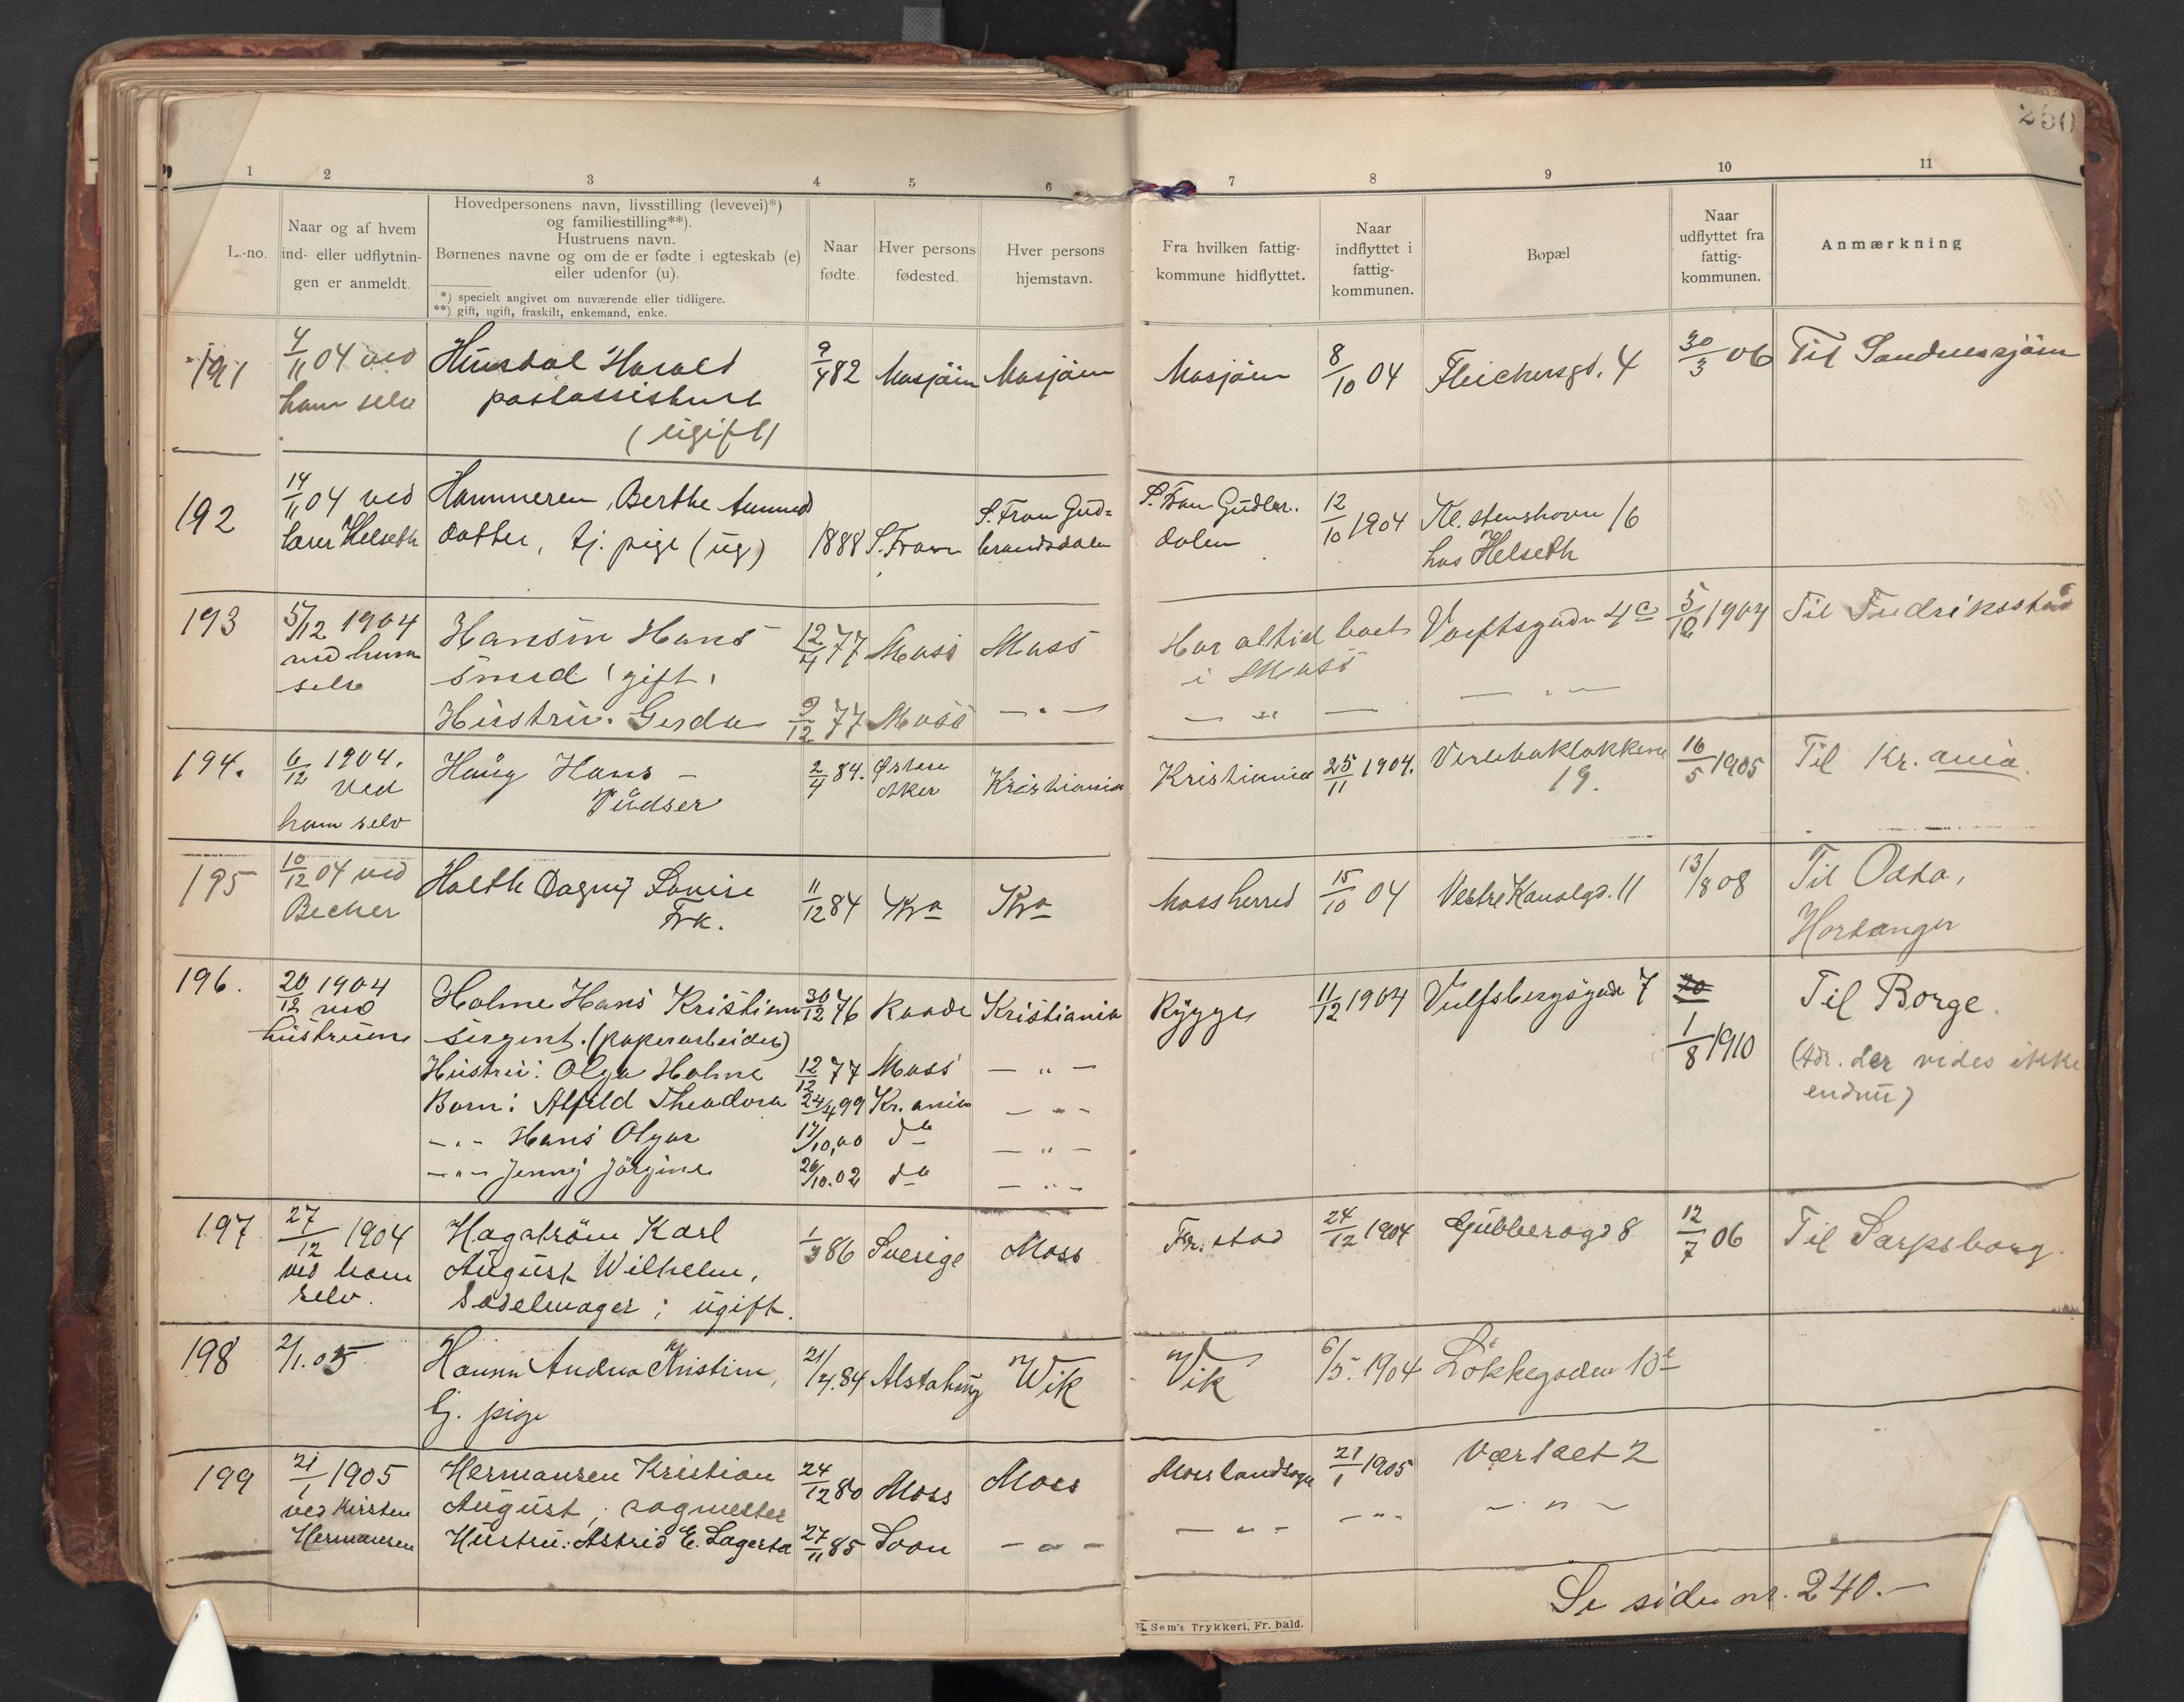 250
1 2 3 4 5 6 7 8 9 10 11
L.-no.
Naar og af hvem
ind- eller udflytnin-
gen er anmeldt.
Hovedpersonens navn, livsstilling (levevei)*)
og familiestilling**).
Hustruens navn.
Børnenes navne og om de er fødte i egteskab (e)
eller udenfor (u).
*) specielt angivet om nuværende eller tidligere.
**) gift, ugift, fraskilt, enkemand, enke.
Naar
fødte.
Hver persons
fødested.
Hver persons
hjemstavn.
Fra hvilken fattig-
kommune hidflyttet.
Naar
indflyttet i
fattig-
kommunen.
Bopæl
Naar
udflyttet fra
fattig-
kommunen.
Anmærkning
191
4/11 04 ved
ham selv
Husdal Harald
postassistent
(ugift)
9/4 82
Mosjøen
Mosjøen
Mosjøen
8/10 04
Fleichersgd. 4
30/3 06
Til Sandnessjøen
192
14/11 04 ved
lærer Helseth
Hammeren, Berthe Amund
datter, tj. pige (ug)
1888
S. Fron
S. Fron Gud=
brandsdalen
S. Fron Gudbr.
dalen
12/10 1904
Kl. stenshovn 16
hos Helseth
193
5/12 1904
ved ham
selv
Hansen Hans
smed (gift)
Hustru: Gerda
12/4 77
9/12 77
Moss
Moss
Moss
— " —
Har altid boet
i Moss
— " —
Værftsgaden 4 c
— " —
5/12 1904
Til Fredriksstad
194.
6/12 1904.
ved
ham selv
Haug Hans
Pudser
2/4 84.
Østre
Aker
Kristiania
Kristiania
25/11 1904.
Verlebakløkken
19.
16/5 1905
Til Kr. ania.
195
10/12 04 ved
Becher
Holth Dagny Lovise
Frk.
11/12 84
Kra
Kra
Moss herred
15/10 04
Vestre Kanalgd. 11
13/8 08
Til Odda,
Hardanger
196.
20/12 1904
ved
hustruen
Holme Hans Kristian
sergent. (papirarbeider)
Hustru: Olga Holme
Barn: Alfild Theodora
— " — Hans Olgar
— " — Jenny Jørgine
30/12 76
12/12 77
24/4 99
17/10.00
26/10.02
Raade
Moss
Kr. ania
do
do
Kristiania
— " —
— " —
— " —
— " —
Rygge
11/12 1904
Vulfsbergsgade 7
20
1/8 1910
Til Borge.
(Adr. der vides ikke
endnu)
197
27/12 1904
ved ham
selv.
Hagström Karl
August Wilhelm,
Sadelmager; ugift.
1/3 86
Sverige
Moss
Fr. stad
24/12 1904
Gubberogd 8
12/7 06
Til Sarpsborg.
198
2/1.05
Hansen Andrea Kristine,
tj. pige
21/4.84
Alstahaug
Wik
Vik
6/5.1904
Løkkegaden 10 e
199
21/1 1905
ved Kirsten
Hermansen
Hermansen Kristian
August, sagmester
Hustru: Astrid E. Lagerta
24/12 80
27/11 85
Moss
Soon
Moss
— " —
Moss landsogn
— " —
21/1 1905
— " —
Værlaet 2
— " —
Se side nr. 240.—
E. Sem's Trykkeri, Fr. hald.